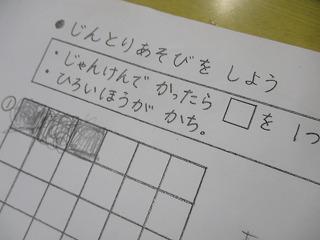 ●じんとりあそびを しよう
・じゃんけんで かったら □を 1つ
・ひろいほうが かち。
①